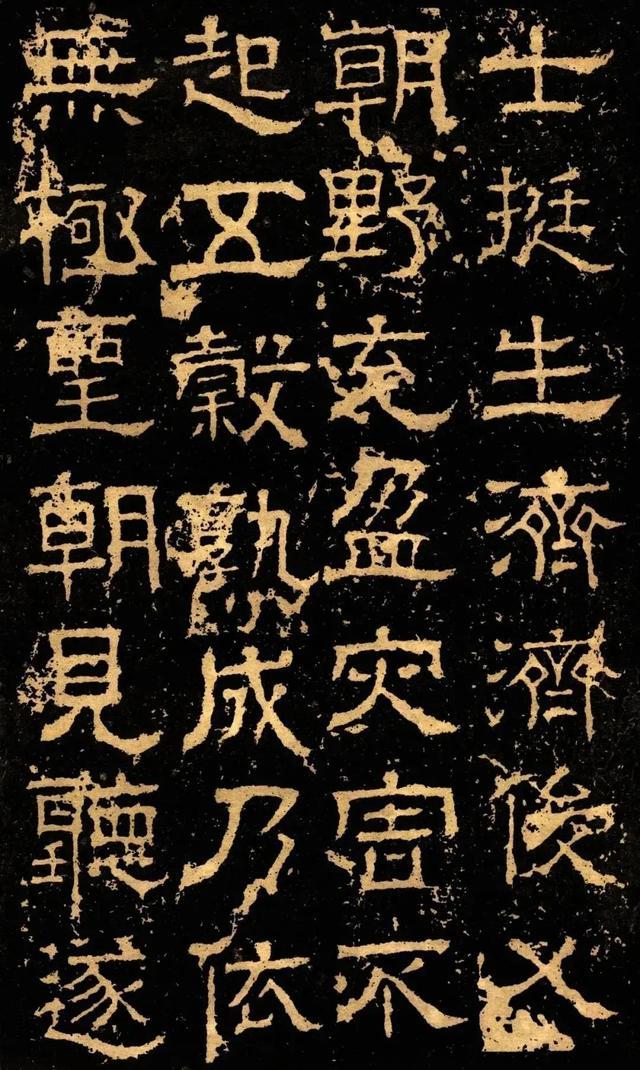 士挺生濟濟俊乂
朝野充盈灾害不
起五穀熟成乃依
無極聖朝見聽遂